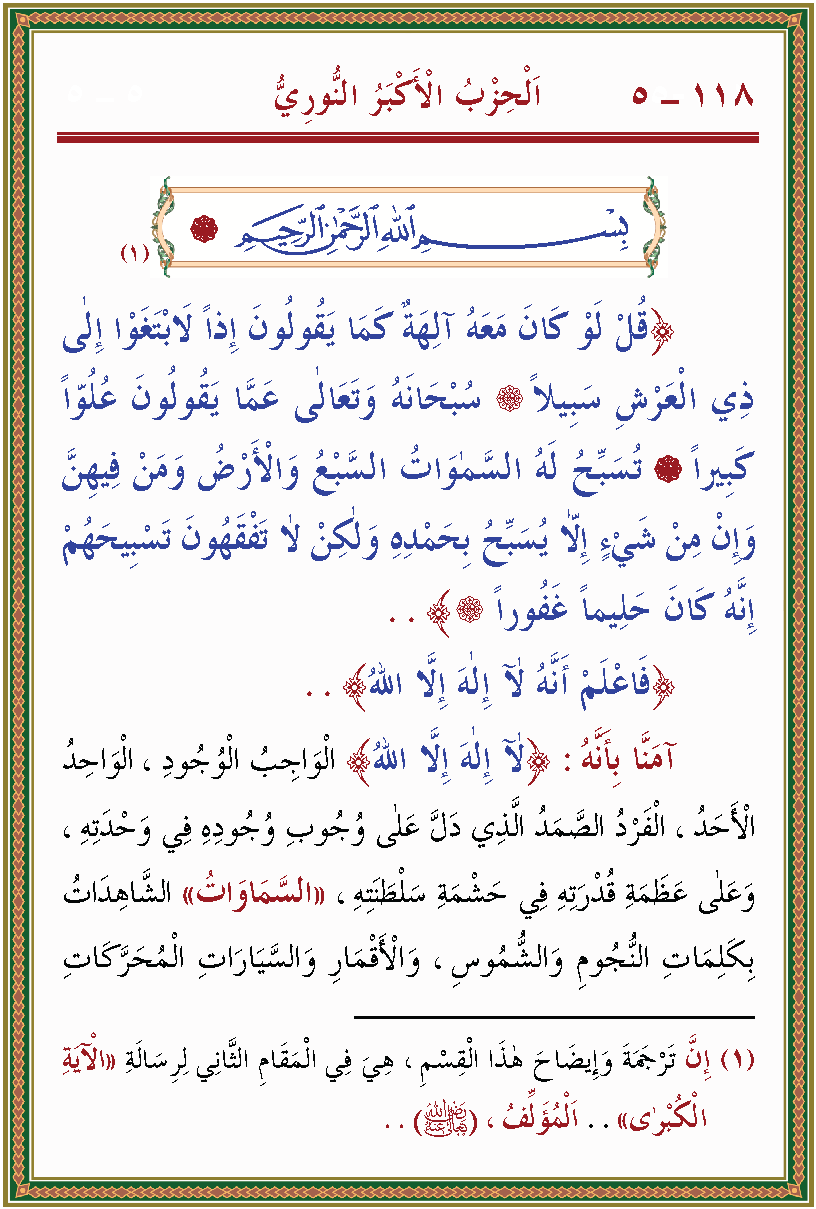 ١١٨ – ٥ اَلْحِزْبُ الْأَكْبَرُ النُّورِيُّ
بِسْمِ ٱللهِ ٱلرَّحْمٰنِ ٱلرَّحِيمِ
(١)
﴿قُلْ لَوْ كَانَ مَعَهُ آلِهَةٌ كَمَا يَقُولُونَ إِذاً لَابْتَغَوْا إِلٰى
ذِي الْعَرْشِ سَبِيلاً ۞ سُبْحَانَهُ وَتَعَالٰى عَمَّا يَقُولُونَ عُلُوّاً
كَبِيراً ۞ تُسَبِّحُ لَهُ السَّمٰوَاتُ السَّبْعُ وَالْأَرْضُ وَمَنْ فِيهِنَّ
وَإِنْ مِنْ شَيْءٍ إِلَّا يُسَبِّحُ بِحَمْدِهِ وَلٰكِنْ لَا تَفْقَهُونَ تَسْبِيحَهُمْ
إِنَّهُ كَانَ حَلِيماً غَفُوراً ۞﴾ . .
﴿فَاعْلَمْ أَنَّهُ لَآ إِلٰهَ إِلَّا اللهُ﴾ . .
آمَنَّا بِأَنَّهُ : ﴿لَآ إِلٰهَ إِلَّا اللهُ﴾ الْوَاجِبُ الْوُجُودِ ، الْوَاحِدُ
الْأَحَدُ ، الْفَرْدُ الصَّمَدُ الَّذِي دَلَّ عَلٰى وُجُوبِ وُجُودِهِ فِي وَحْدَتِهِ ،
وَعَلٰى عَظَمَةِ قُدْرَتِهِ فِي حَشْمَةِ سَلْطَنَتِهِ ، «السَّمَاوَاتُ» الشَّاهِدَاتُ
بِكَلِمَاتِ النُّجُومِ وَالشُّمُوسِ ، وَالْأَقْمَارِ وَالسَّيَارَاتِ الْمُحَرَّكَاتِ
(١) إِنَّ تَرْجَمَةَ وَإِيضَاحَ هٰذَا الْقِسْمِ ، هِيَ فِي الْمَقَامِ الثَّانِي لِرِسَالَةِ «الْآيَةِ
الْكُبْرٰى» . . اَلْمُؤَلِّفُ ، (رضي الله تعالى عنه) . .